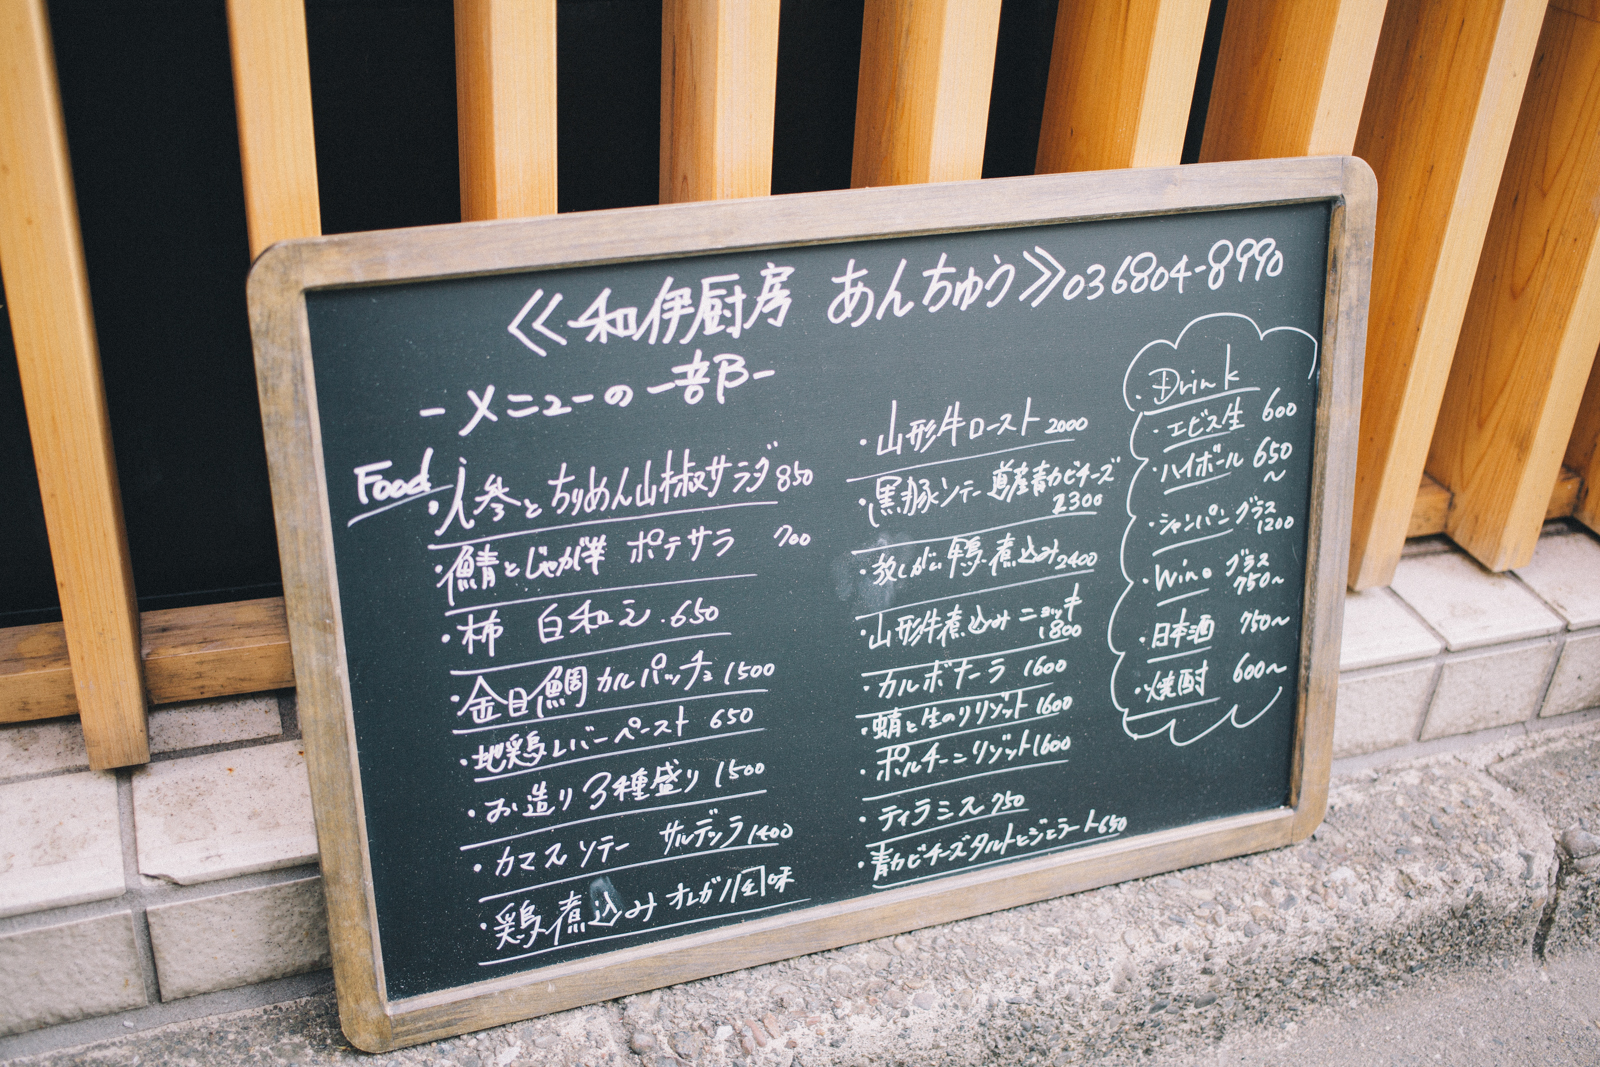 ≪和伊厨房 あんちゅう≫ 03 6804-8990
-メニューの一部-
Food
・人参とちりめん山椒サラダ 850
・鯖とじゃが芋 ポテサラ 700
・柿 白和え. 650
・金目鯛カルパッチョ 1500
・地鶏レバーペースト 650
・お造り3種盛り 1500
・カマスソテー サルデッラ 1400
・鶏煮込み オレガノ風味
・山形牛ロースト 2000
・黒豚ソテー 道産青カビチーズ
2300
・放しがい鴨煮込み 2400
・山形牛煮込みニョッキ
1800
・カルボナーラ 1600
・蛸と生のりリゾット 1600
・ポルチーニリゾット 1600
・ティラミス 750
・青カビチーズタルトとジェラート 650
・Drink
・エビス生 600
・ハイボール 650
~
・シャンパングラス
1200
・Wine グラス
750~
・日本酒 750~
・焼酎 600~